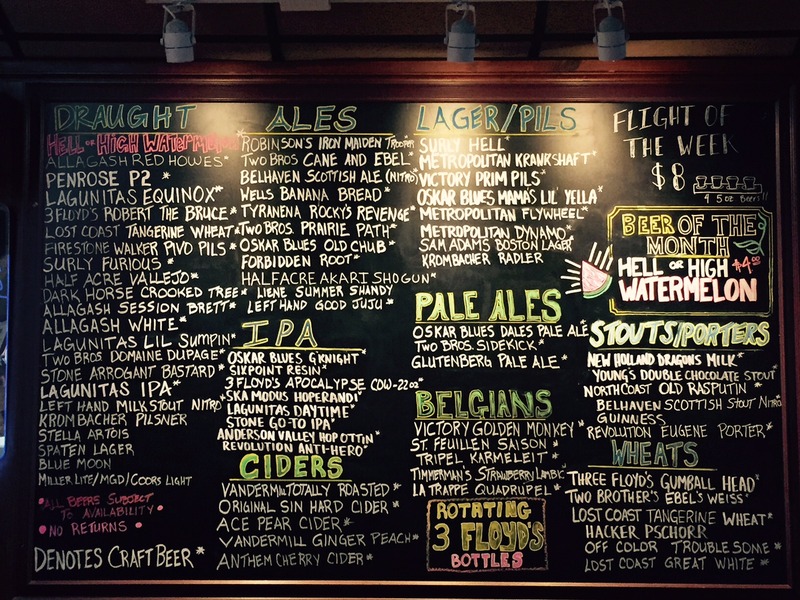 DRAUGHT
HELL OR HIGH WATERMELON
ALLAGASH RED HOWES*
PENROSE P2 *
LAGUNITAS EQUINOX*
3 FLOYD'S ROBERT THE BRUCE*
LOST COAST TANGERINE WHEAT*
FIRESTONE WALKER PIVO PILS*
SURLY FURIOUS *
HALF ACRE VALLEJO*
DARK HORSE CROOKED TREE*
ALLAGASH SESSION BRETT*
ALLAGASH WHITE*
LAGUNITAS LIL SUMPIN*
TWO BROS DOMAINE DUPAGE*
STONE ARROGANT BASTARD*
LAGUNITAS IPA*
LEFT HAND MILK STOUT NITRO*
KROMBACHER PILSNER
STELLA ARTOIS
SPATEN LAGER
BLUE MOON
MILLER LITE/MGD/COORS LIGHT
•ALL BEERS SUBJECT
TO AVAILABILITY•
•NO RETURNS •
DENOTES CRAFT BEER*
ALES
ROBINSON'S IRON MAIDEN TROOPER
TWO BROS CANE AND EBEL*
BELHAVEN SCOTTISH ALE (NITRO)
WELLS BANANA BREAD*
TYRANENA ROCKY'S REVENGE*
TWO BROS. PRAIRIE PATH*
OSKAR BLUES OLD CHUB*
FORBIDDEN ROOT*
HALFACRE AKARI SHOGUN*
LIENE SUMMER SHANDY
LEFT HAND GOOD JUJU*
IPA
OSKAR BLUES G'KNIGHT*
SIXPOINT RESIN*
3 FLOYD'S APOCALYPSE COW-22oz*
SKA MODUS HOPERANDI*
LAGUNITAS DAYTIME*
STONE GO-TO IPA*
ANDERSON VALLEY HOP OTTIN*
REVOLUTION ANTI-HERO*
CIDERS
VANDERMILL TOTALLY ROASTED*
ORIGINAL SIN HARD CIDER*
ACE PEAR CIDER*
VANDERMILL GINGER PEACH*
ANTHEM CHERRY CIDER*
LAGER/PILS
SURLY HELL*
METROPOLITAN KRANKSHAFT*
VICTORY PRIM PILS*
OSKAR BLUES MAMA'S LIL' YELLA*
METROPOLITAN FLYWHEEL*
METROPOLITAN DYNAMO*
SAM ADAMS BOSTON LAGER
KROMBACHER RADLER
PALE ALES
OSKAR BLUES DALES PALE ALE*
TWO BROS. SIDEKICK*
GLUTENBERG PALE ALE*
BELGIANS
VICTORY GOLDEN MONKEY*
ST. FEUILLEN SAISON*
TRIPEL KARMELEIT*
TIMMERMAN'S STRAWBERRY LAMBIC*
LA TRAPPE QUADRUPEL*
ROTATING
3 FLOYD'S
BOTTLES
FLIGHT OF
THE WEEK
$8
4 5oz Beers!!
BEER OF THE
MONTH
HELL OR HIGH $4.00
WATERMELON
STOUTS/PORTERS
NEW HOLLAND DRAGONS MILK*
YOUNG'S DOUBLE CHOCOLATE STOUT*
NORTH COAST OLD RASPUTIN *
BELHAVEN SCOTTISH STOUT NITRO
GUINNESS
REVOLUTION EUGENE PORTER*
WHEATS
THREE FLOYD'S GUMBALL HEAD*
TWO BROTHER'S EBEL'S WEISS*
LOST COAST TANGERINE WHEAT*
HACKER PSCHORR
OFF COLOR TROUBLESOME*
LOST COAST GREAT WHITE*